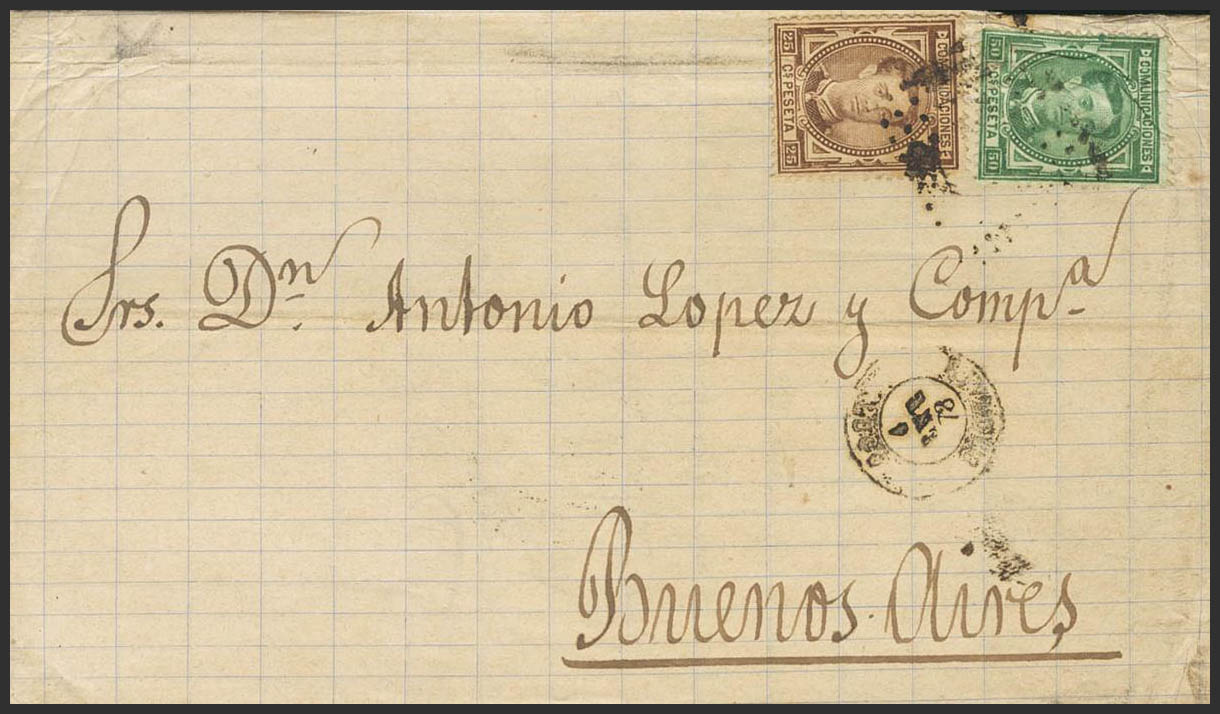 COMUNICACIONES
25 Cs PESETA 25
COMUNICACIONES
50 Cs PESETA 50
Srs. Dn. Antonio Lopez y Compa
78
Buenos Aires